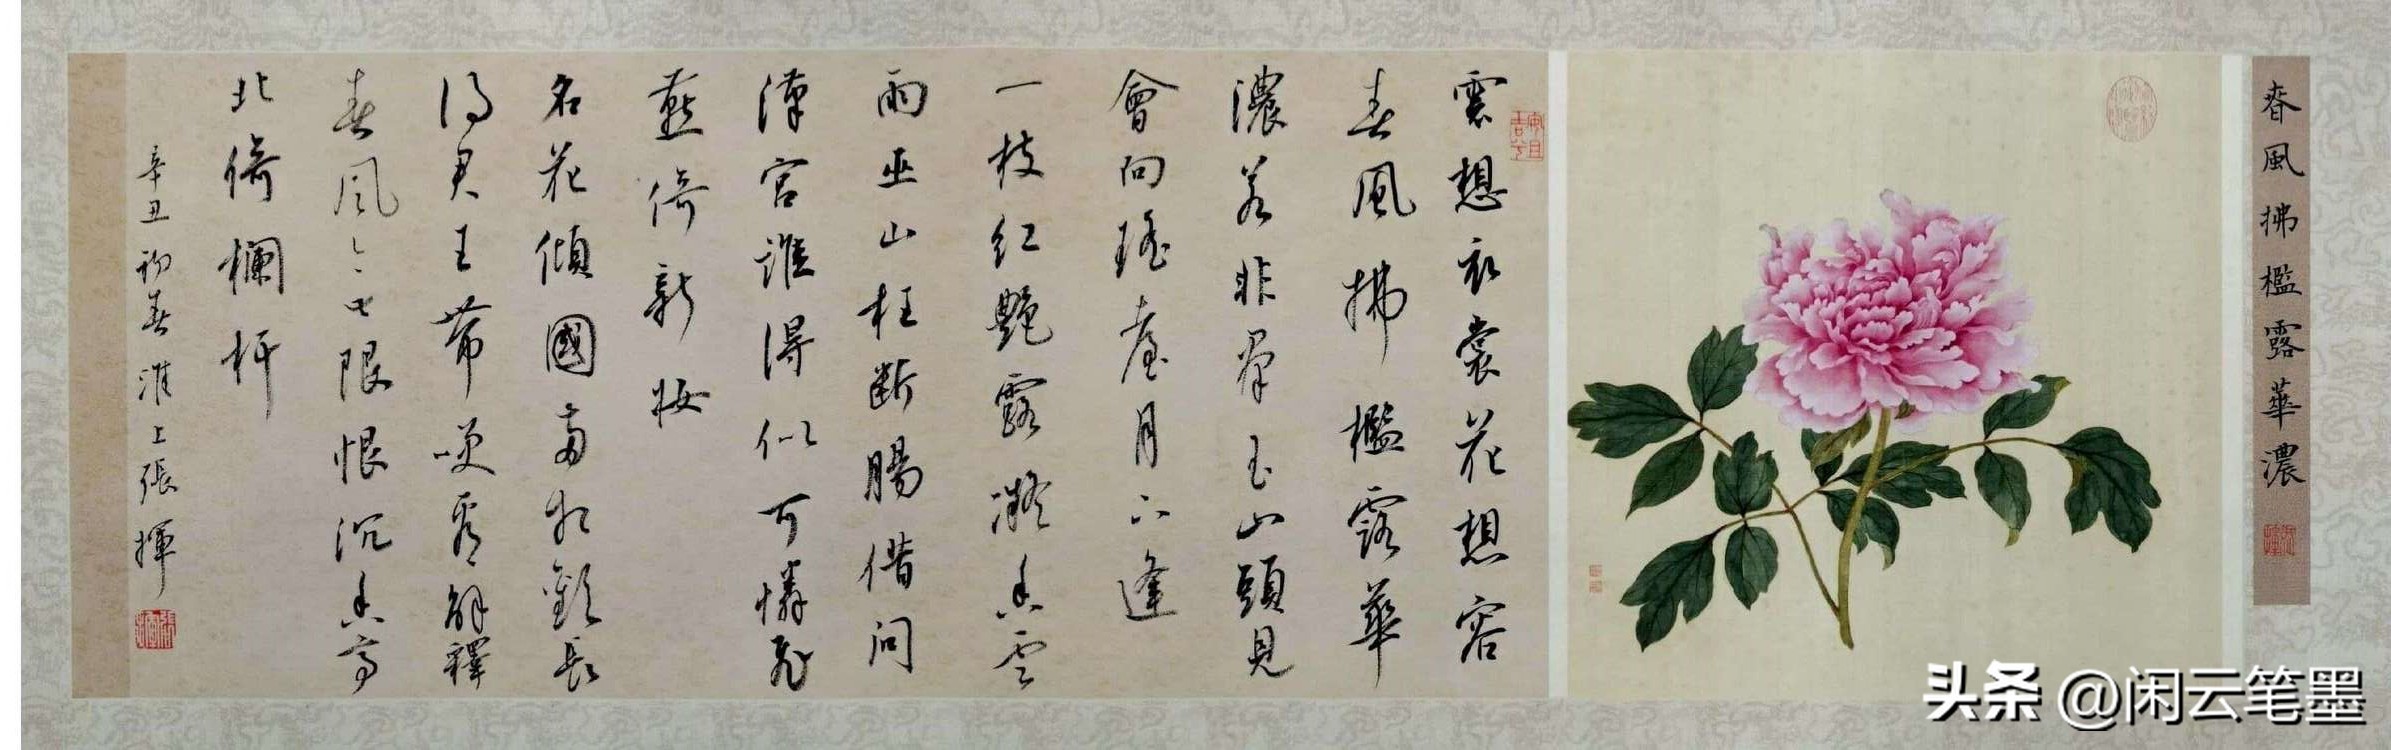 春風拂檻露華濃
雲想衣裳花想容
春風拂檻露華
濃若非羣玉山頭見
會向瑤臺月下逢
一枝紅艷露凝香雲
雨巫山枉斷腸借問
漢宮誰得似可憐飛
燕倚新妝
名花傾國兩相歡長
得君王帶笑看解釋
春風無限恨沉香亭
北倚欄杆
辛丑初春淮上張揮
安且吉兮
头条 @闲云笔墨